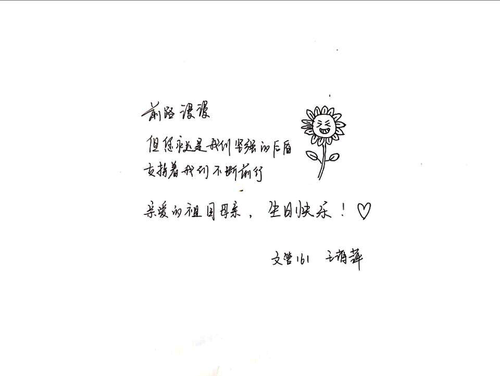 前路漫漫
但您永远是我们坚强的后盾
支持着我们不断前行
亲爱的祖国母亲，生日快乐！♡
文管161 王海萍